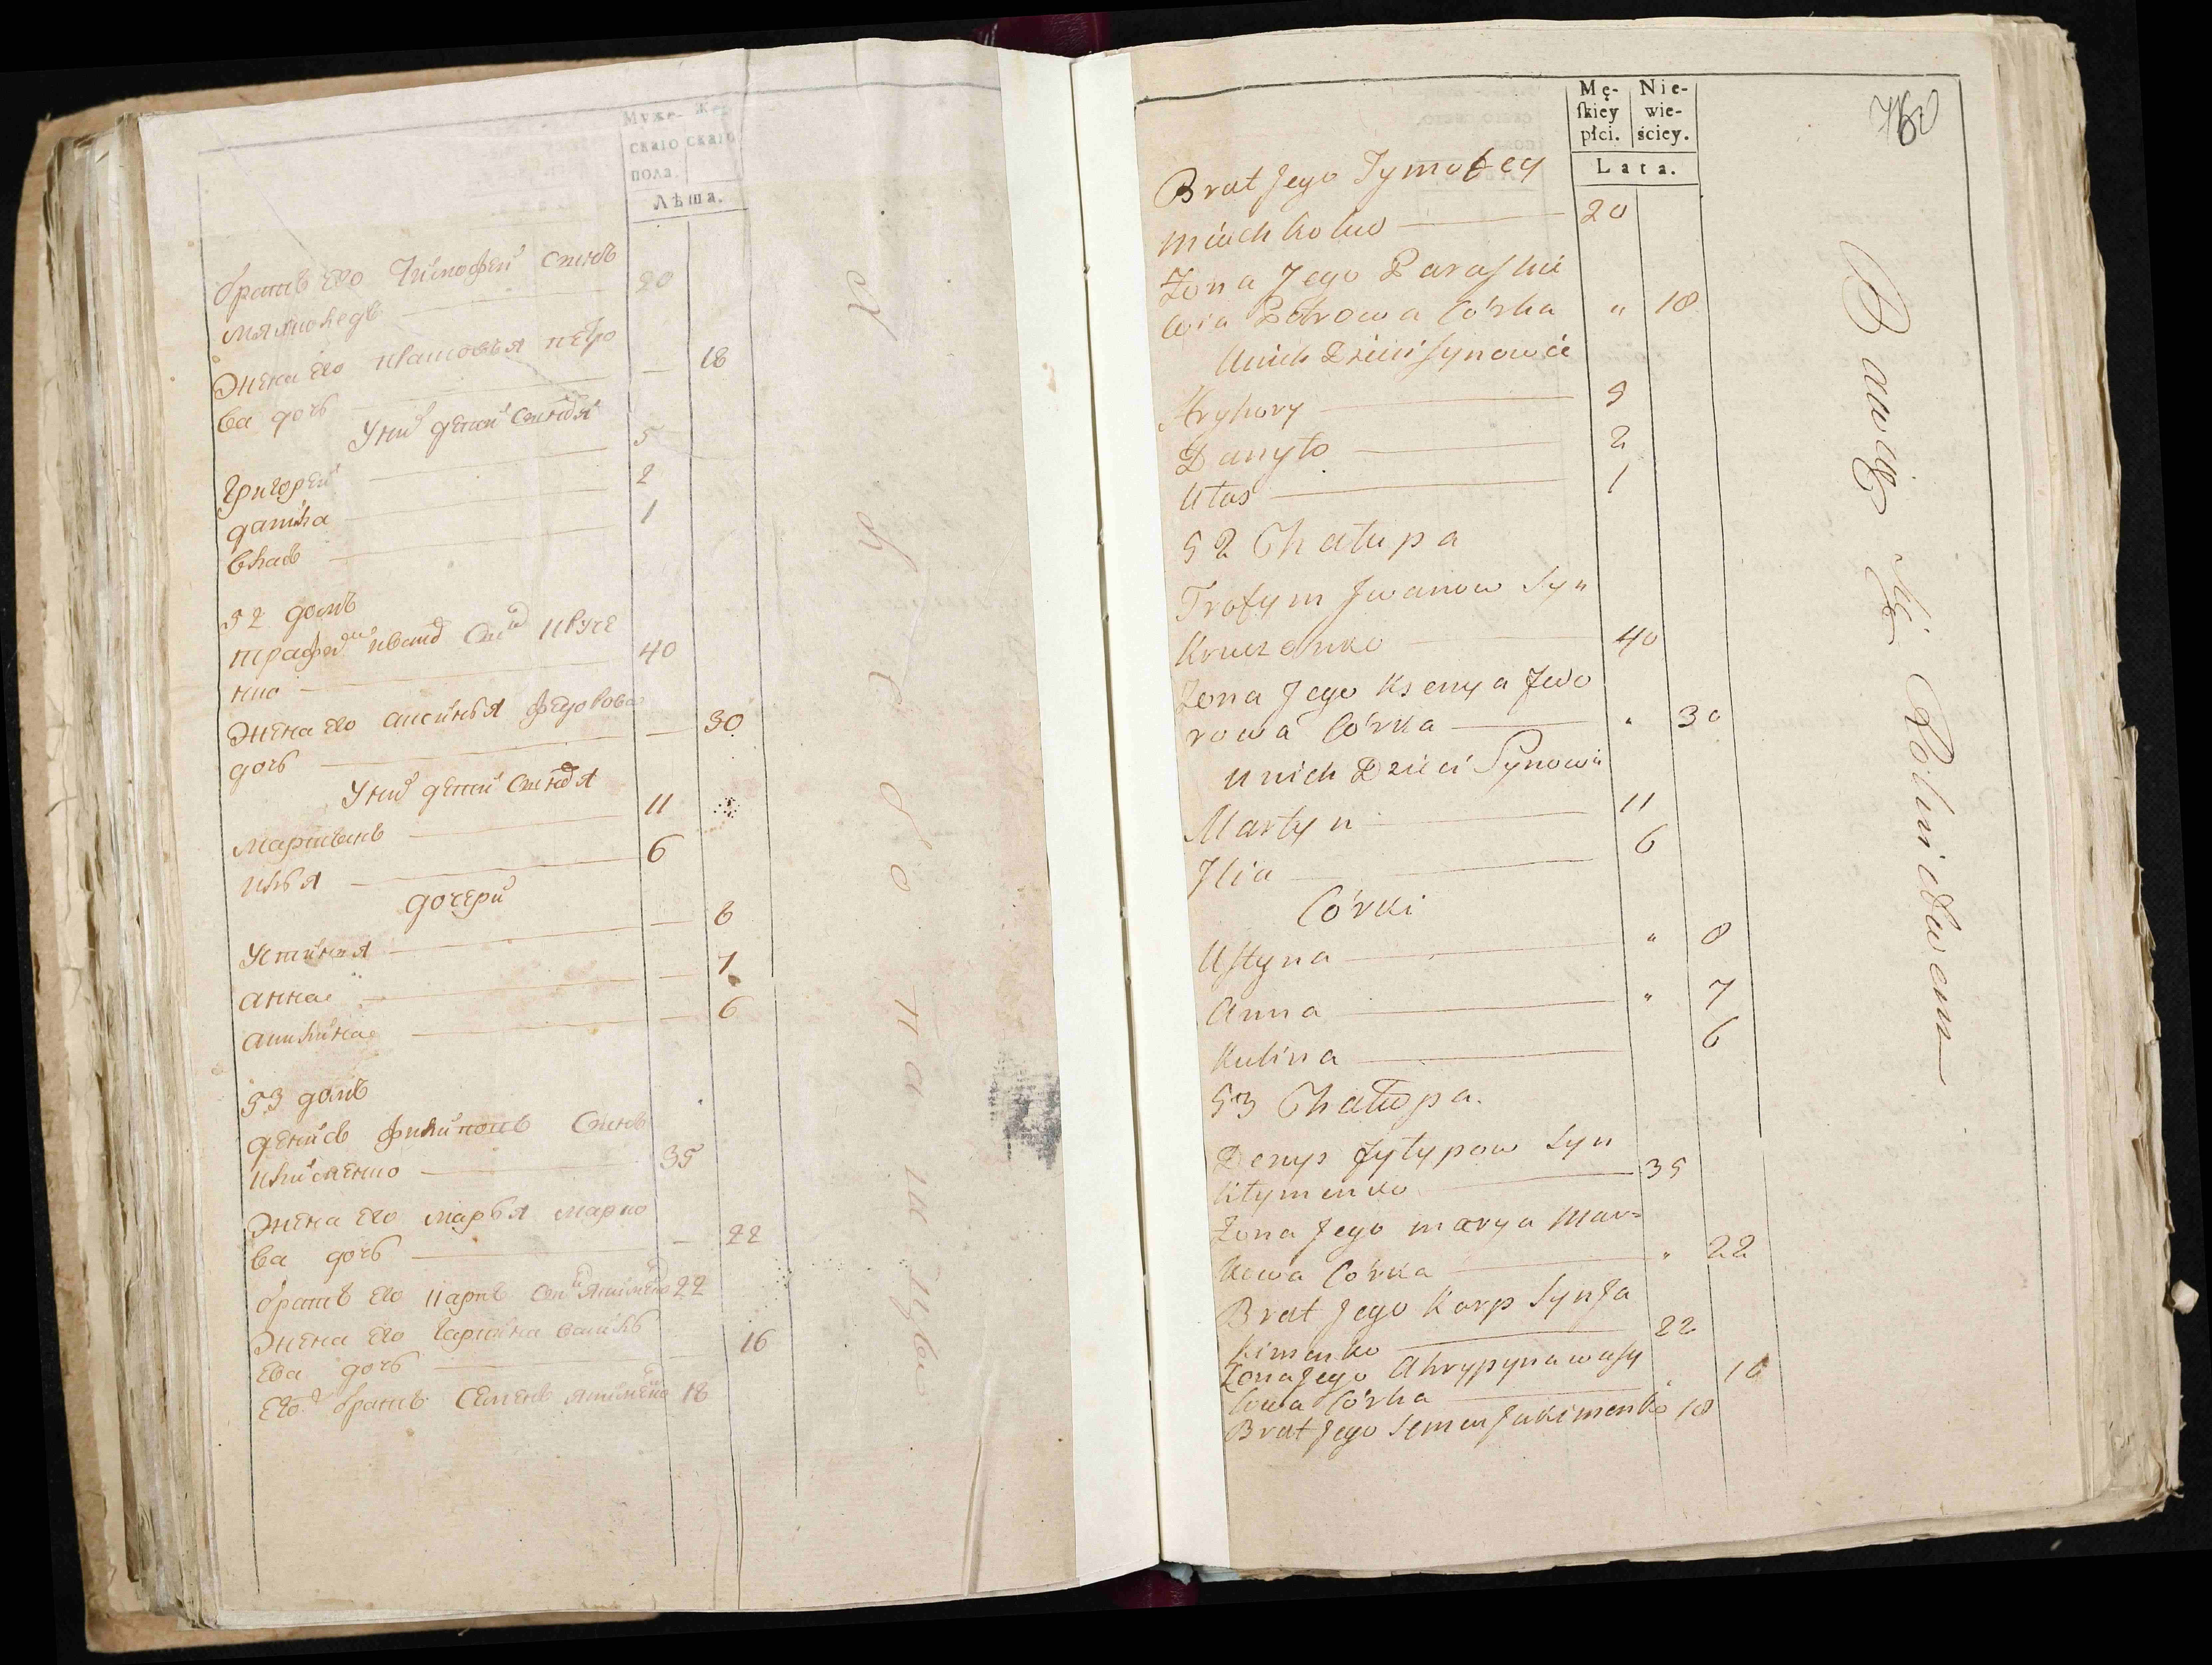 Муже-
скаго
пола.
Жен-
скаго
Лѣта.
братъ его Тимофей синъ
20
жена его
18
ва дочь
У них детей синовя
Григорей 5
данила 2
влас 1
52 домъ
40
жена его аксиния федорова
дочь 30
У них детей синовя
мартинъ 11
илья 6
дочери
Устиния 8
анна 7
акилина 6
53 домъ
денисъ филиповъ синъ
клименко 35
жена его марья марко
ва дочь 22
братъ его карпъ син якименко 22
жена его васил
ева дочь 16
его братъ семенъ якименко 18
Mę-
ſkiey
płci.
Nie-
wie-
ściey.
Lata.
760
Brat Jego Tymofey
20
Żona Jego Paraſki
wia Petrowa Córka " 18
U nich Dzieci Synowie
Hryhory 5
Danyło 2
Ułas 1
52 Chałupa
Trofym Jwanow Syn
Kruczenko 40
Żona Jego Ksenya Fedo
rowa Córka " 30
U nich Dzieci Synowie
Martyn 11
Jlia 6
Córki
Uſtyna " 8
Anna " 7
Kulina 6
53 Chałupa.
Denys Fyłypow Syn
Kłymenko 35
Żona Jego Marya Mar=
kowa Córka " 22
Brat Jego Karp Syn Ja
kimenko 22
Żona Jego Ahrypyna Wasy
lowa Córka " 16
Brat Jego Semen Jakimenko 18
Bawią się Rolnictwem